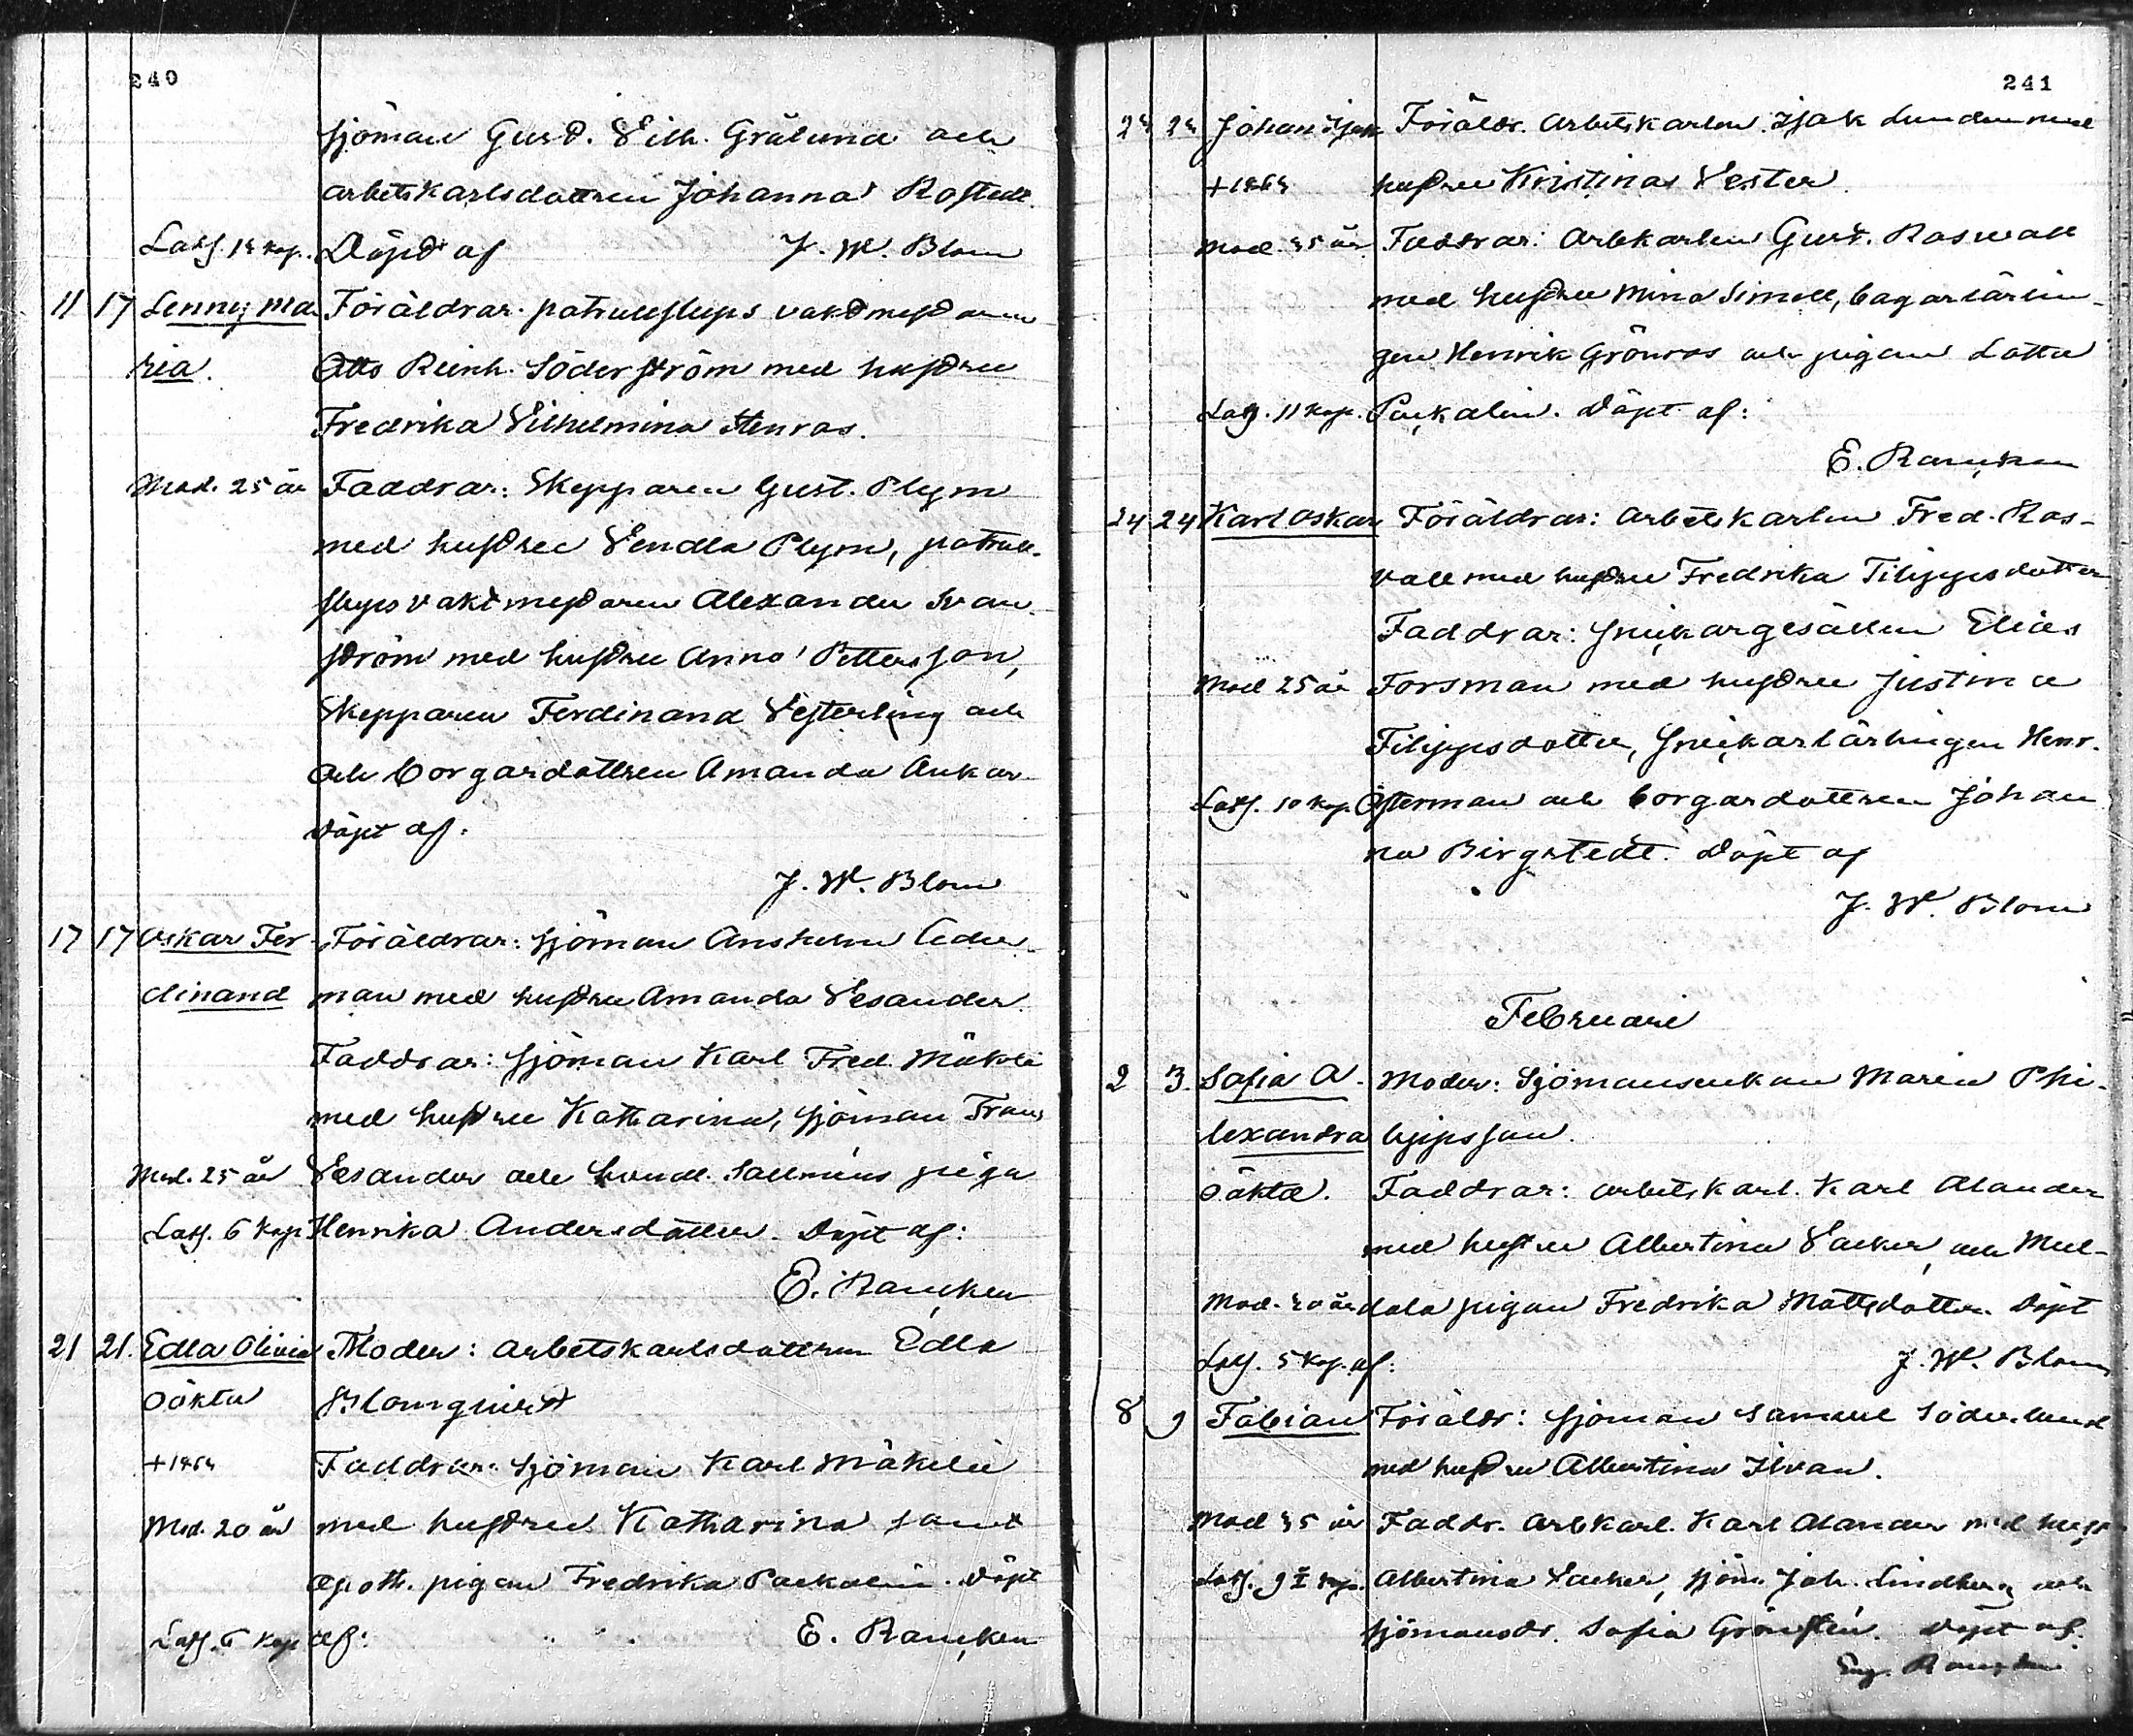 240
sjöman Gust. Vilh. Grålund och
arbetskarlsdottren Johanna Rostedt.
Lasf. 14 kop. Döpt af J. W. Blom
11 17 Lenny Ma- Föräldrar: patrullslups vaktmästaren
ria. Otto Reinh. Söderström med hustru
Fredrika Vilhelmina Stenros.
Mod. 25 år Faddrar: Skepparen Gust. Plym
med hustru Vendla Plym, patrull-
slups vaktmästaren Alexander Svan-
ström med hustru Anna Pettersson,
Skepparen Ferdinand Vesterling och
och borgardottren Amanda Ankar.
Döpt af:
J. W. Blom
17 17 Oskar Fer- Föräldrar: Sjöman Anshelm Ceder-
dinand man med hustru Amanda Vesander.
Faddrar: Sjöman Karl Fred. Mäkelä
med hustru Katharina, sjöman Frans
Mod. 25 år Vesander och handl. Sallmèns piga
Lasf. 6 kop Henrika Andersdotter. Döpt af:
E. Rancken
21 21. Edla Olivia Moder: arbetskarlsdottren Edla
oäkta Blomquist
+1864 Faddrar: Sjöman Karl Mäkelä
Mod. 20 år med hustru Katharina samt
apoth. pigan Fredrika Packalin. Döpt
Lasf. 6 kop af: E. Rancken
241
24 24 Johan Isak Föräldr. arbetskarlen Isak Lunden med
+1864 hustru Kristina Vester.
Mod. 35 år. Faddrar: Arbkarlen Gust. Roswall
med hustru Mina Simell, bagarlärlin-
gen Henrik Grönros och pigan Lotta
Lasf. 11 kop. Packalin. Döpt af:
E. Rancken
24 24 Karl Oskar Föräldrar: arbetskarlen Fred. Ros-
vall med hustru Fredrika Filippsdotter
Faddrar: Snickargesällen Elias
Mod 25 år Forsman med hustru Justina
Filippsdotter, Snickarlärlingen Henr.
Lasf. 10 kop. Österman och borgardottren Johan
na Birgstedt. Döpt af
J. W. Blom
Februari
2 3. Sofia A- Moder: Sjömansenkan Maria Phi-
lexandra lippsson.
oäkta. Faddrar: arbetskarl. Karl Alander
med hustru Albertina Vacker och Mul-
Mod. 40 år dola pigan Fredrika Mattsdotter. Döpt
Lasf. 5 kop. af: J. W. Blom
8 9 Fabian Föräldr: Sjöman Samuel Söderlund
med hustru Albertina Ilvan.
Mod 35 år Faddr. Arbkarl. Karl Alander med hustr
Lasf. 9 kop. Albertina Vacker, sjöm. Joh. Lindberg och
sjömansdr. Sofia Grönstén. Döpt af.
Eug. Rancken